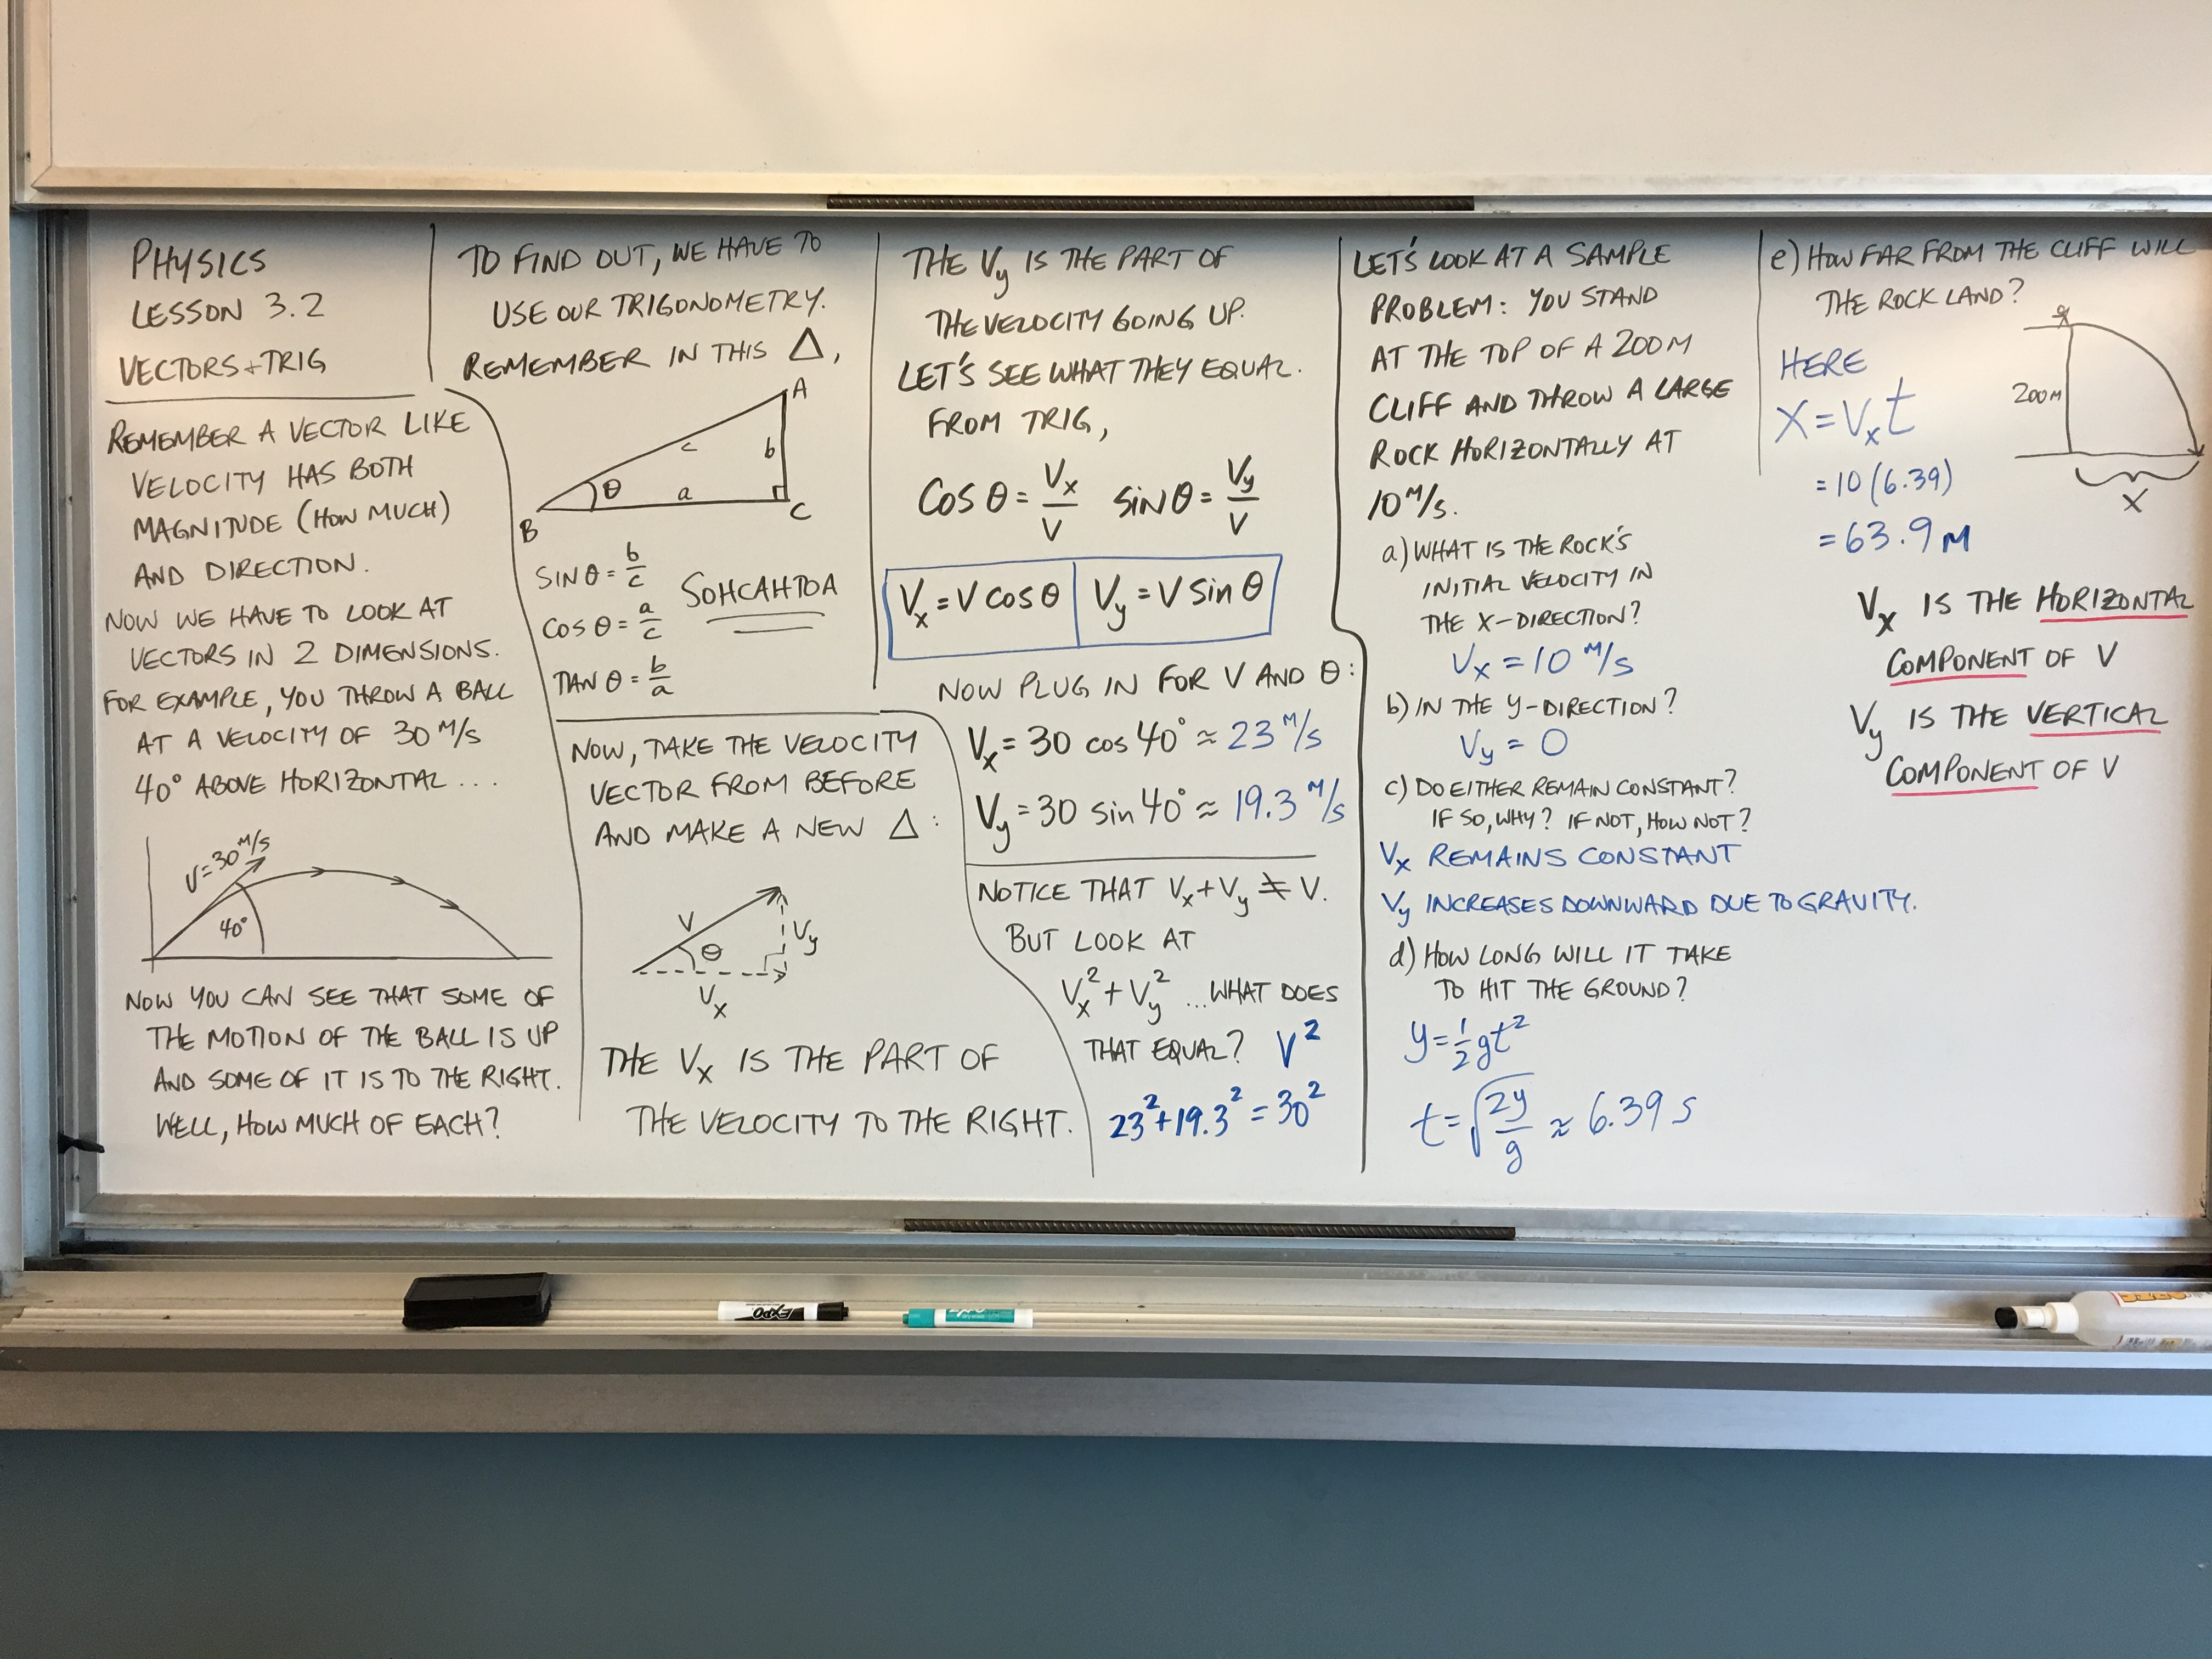 PHYSICS
LESSON 3.2
VECTORS + TRIG
REMEMBER A VECTOR LIKE
VELOCITY HAS BOTH
MAGNITUDE (HOW MUCH)
AND DIRECTION.
NOW WE HAVE TO LOOK AT
VECTORS IN 2 DIMENSIONS.
FOR EXAMPLE, YOU THROW A BALL
AT A VELOCITY OF 30 M/S
40° ABOVE HORIZONTAL . . .
V=30 M/S
40°
NOW YOU CAN SEE THAT SOME OF
THE MOTION OF THE BALL IS UP
AND SOME OF IT IS TO THE RIGHT.
WELL, HOW MUCH OF EACH?
TO FIND OUT, WE HAVE TO
USE OUR TRIGONOMETRY.
REMEMBER IN THIS △,
A
c
b
θ
a
B
C
SIN θ = b/c
COS θ = a/c
TAN θ = b/a
SOHCAHTOA
NOW, TAKE THE VELOCITY
VECTOR FROM BEFORE
AND MAKE A NEW △ :
V
θ
Vy
Vx
THE Vx IS THE PART OF
THE VELOCITY TO THE RIGHT.
THE Vy IS THE PART OF
THE VELOCITY GOING UP.
LET'S SEE WHAT THEY EQUAL.
FROM TRIG,
COS θ = Vx/V SIN θ = Vy/V
Vx = V COS θ Vy = V SIN θ
NOW PLUG IN FOR V AND θ :
Vx = 30 cos 40° ≈ 23 M/S
Vy = 30 sin 40° ≈ 19.3 M/S
NOTICE THAT Vx + Vy ≠ V.
BUT LOOK AT
Vx² + Vy² ...WHAT DOES
THAT EQUAL? V²
23² + 19.3² = 30²
LET'S LOOK AT A SAMPLE
PROBLEM: YOU STAND
AT THE TOP OF A 200M
CLIFF AND THROW A LARGE
ROCK HORIZONTALLY AT
10 M/S.
a) WHAT IS THE ROCK'S
INITIAL VELOCITY IN
THE X-DIRECTION?
Vx = 10 M/S
b) IN THE Y-DIRECTION?
Vy = 0
c) DO EITHER REMAIN CONSTANT?
IF SO, WHY? IF NOT, HOW NOT?
Vx REMAINS CONSTANT
Vy INCREASES DOWNWARD DUE TO GRAVITY.
d) HOW LONG WILL IT TAKE
TO HIT THE GROUND?
y = 1/2 gt²
t = √(2y/g) ≈ 6.39 s
e) HOW FAR FROM THE CLIFF WILL
THE ROCK LAND?
200M
X
HERE
X = Vx t
= 10 (6.39)
= 63.9 M
Vx IS THE HORIZONTAL
COMPONENT OF V
Vy IS THE VERTICAL
COMPONENT OF V
EXPO